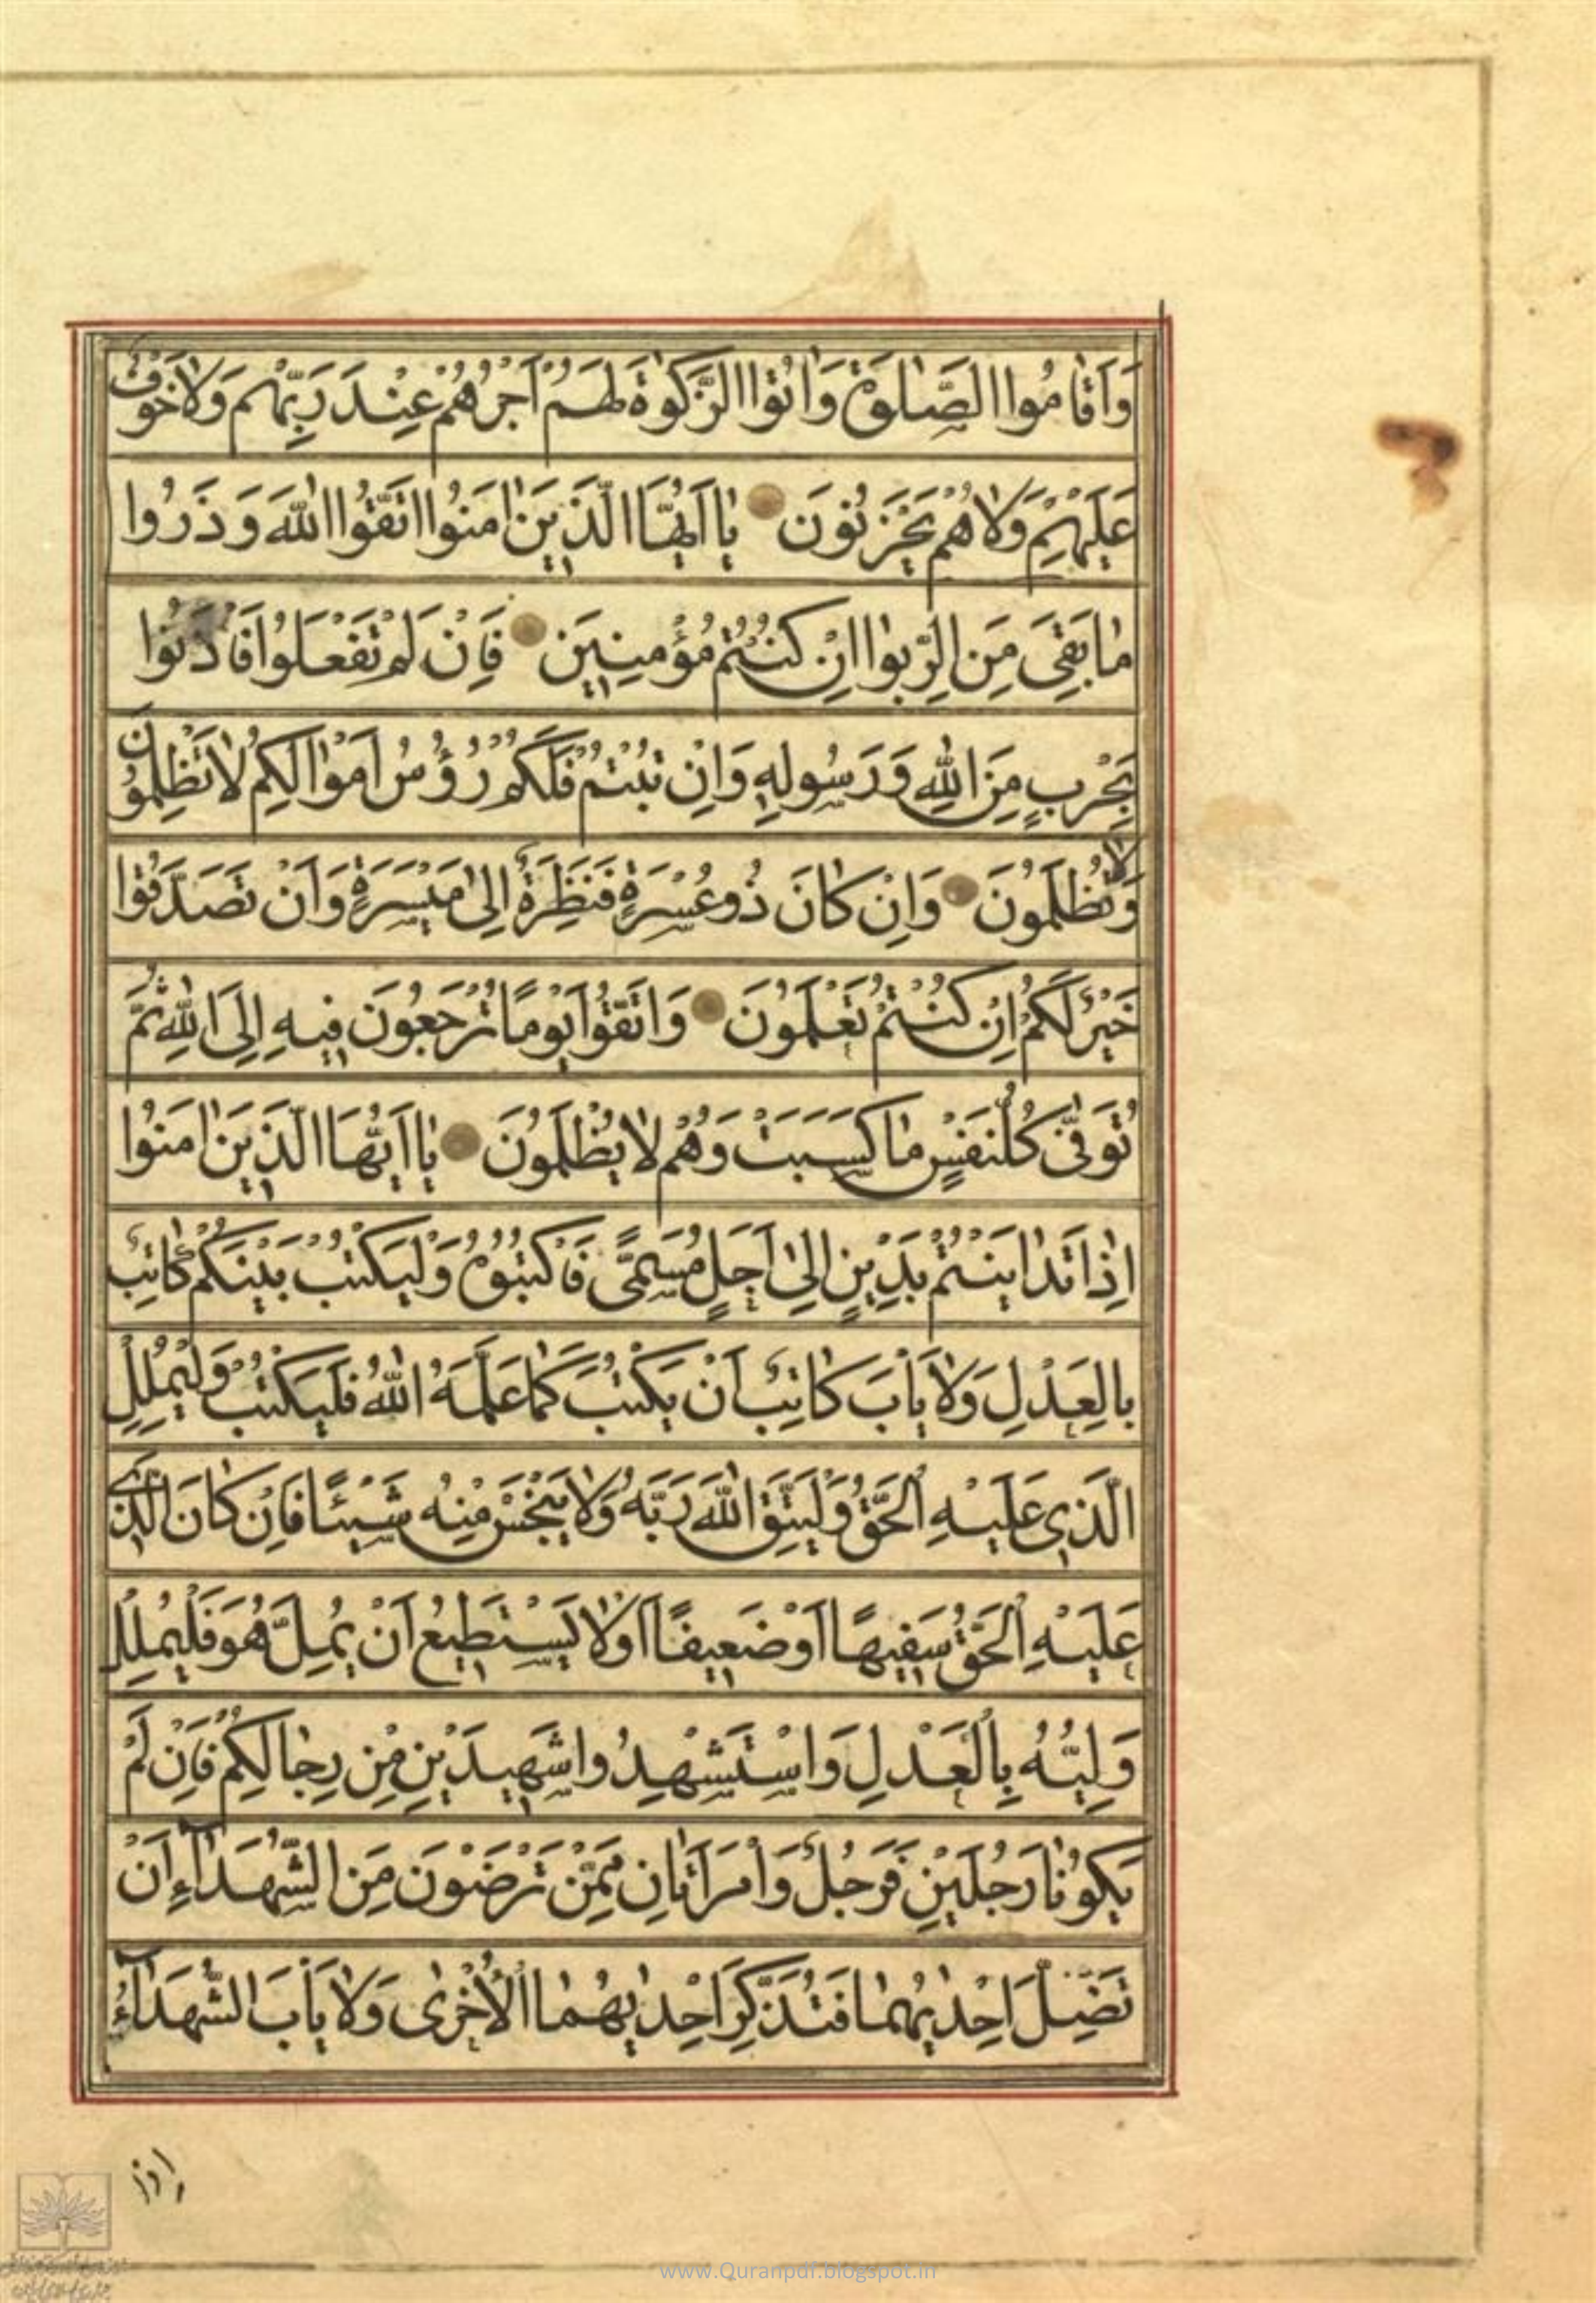 وَاَقامُوا الصَّلٰوةَ وَاٰتَوُا الزَّكٰوةَ لَهُمْ اَجْرُهُمْ عِنْدَ رَبِّهِمْ وَلا خَوْفٌ
عَلَيْهِمْ وَلا هُمْ يَحْزَنُونَ يا اَيُّهَا الَّذينَ اٰمَنُوا اتَّقُوا اللّٰهَ وَ ذَرُوا
ما بَقِىَ مِنَ الرِّبوا اِنْ كُنْتُمْ مُؤْمِنينَ فَاِنْ لَمْ تَفْعَلُوا فَأْذَنُوا
بِحَرْبٍ مِنَ اللّٰهِ وَ رَسُولِهِ وَاِنْ تُبْتُمْ فَلَكُمْ رُؤُسُ اَمْوالِكُمْ لا تَظْلِمُونَ
وَلا تُظْلَمُونَ وَاِنْ كانَ ذُو عُسْرَةٍ فَنَظِرَةٌ اِلىٰ مَيْسَرَةٍ وَاَنْ تَصَدَّقُوا
خَيْرٌ لَكُمْ اِنْ كُنْتُمْ تَعْلَمُونَ وَاتَّقُوا يَوْمًا تُرْجَعُونَ فيهِ اِلَى اللّٰهِ ثُمَّ
تُوَفّٰى كُلُّ نَفْسٍ ما كَسَبَتْ وَهُمْ لا يُظْلَمُونَ يا اَيُّهَا الَّذينَ اٰمَنُوا
اِذا تَدايَنْتُمْ بِدَيْنٍ اِلىٰ اَجَلٍ مُسَمًّى فَاكْتُبُوهُ وَلْيَكْتُبْ بَيْنَكُمْ كاتِبٌ
بِالْعَدْلِ وَلا يَأْبَ كاتِبٌ اَنْ يَكْتُبَ كَما عَلَّمَهُ اللّٰهُ فَلْيَكْتُبْ وَلْيُمْلِلِ
الَّذي عَلَيْهِ الْحَقُّ وَلْيَتَّقِ اللّٰهَ رَبَّهُ وَلا يَبْخَسْ مِنْهُ شَيْئًا فَاِنْ كانَ الَّذي
عَلَيْهِ الْحَقُّ سَفيهًا اَوْ ضَعيفًا اَوْ لا يَسْتَطيعُ اَنْ يُمِلَّ هُوَ فَلْيُمْلِلْ
وَلِيُّهُ بِالْعَدْلِ وَاسْتَشْهِدُوا شَهيدَيْنِ مِنْ رِجالِكُمْ فَاِنْ لَمْ
يَكُونا رَجُلَيْنِ فَرَجُلٌ وَامْرَاَتانِ مِمَّنْ تَرْضَوْنَ مِنَ الشُّهَداءِ اَنْ
تَضِلَّ اِحْدٰيهُما فَتُذَكِّرَ اِحْدٰيهُمَا الْاُخْرٰى وَلا يَأْبَ الشُّهَداءُ
اِذا
www.Quranpdf.blogspot.in